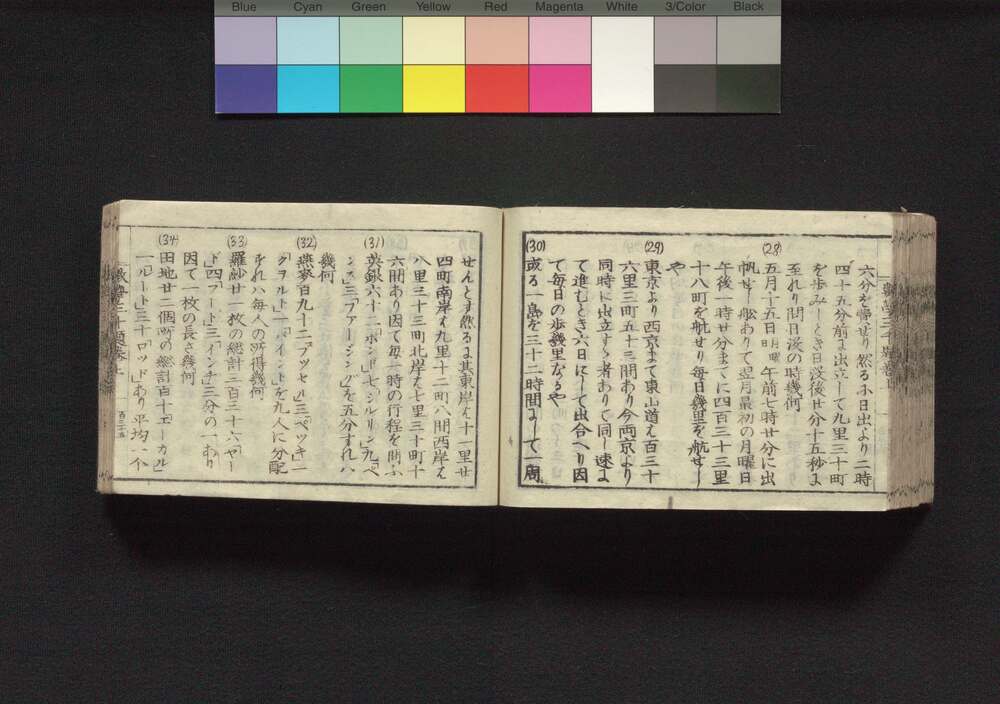 Blue Cyan Green Yellow Red Magenta White 3/Color Black
六分を帰せり然るに日出より二時
四十五分前に出立して九里三十町
を歩みしとき日没後廿分十五秒に
至れり問日没の時幾何
(28)
五月十五日日曜日午前七時廿分に出
帆せし船ありて翌月最初の月曜日
午後一時廿分まてに四百三十三里
十八町を航せり毎日幾里を航せし
や
(29)
東京より西京まて東山道を百三十
六里三町五十三間あり今両京より
同時に出立する者ありて同し速に
て進むとき六日にして出合へり因
て毎日の歩幾里なるや
(30)
或る一島を三十二時間にして一周
せんとす然るに其東岸を十一里廿
四町南岸を九里十二町八間西岸を
八里三十三町北岸を七里三十町十
六間あり因て毎一時の行程を問ふ
(31)
英銀六十二「ポンド」七「シルリン」九「ペ
ンス」三「ファーシング」を五分すれハ
幾何
(32)
燕麥百九十二「ブッセル」三「ペッキ」一
「クヲルト」一「パイント」を九人に分配
すれハ毎人の所得幾何
(33)
羅紗廿一枚の総計二百三十六「ヤー
ド」四「フート」三「インチ」三分の一あり
因て一枚の長さ幾何
(34)
田地廿二個所の総計百十「エーカル」
一「ルート」三十「ロッド」あり平均一个